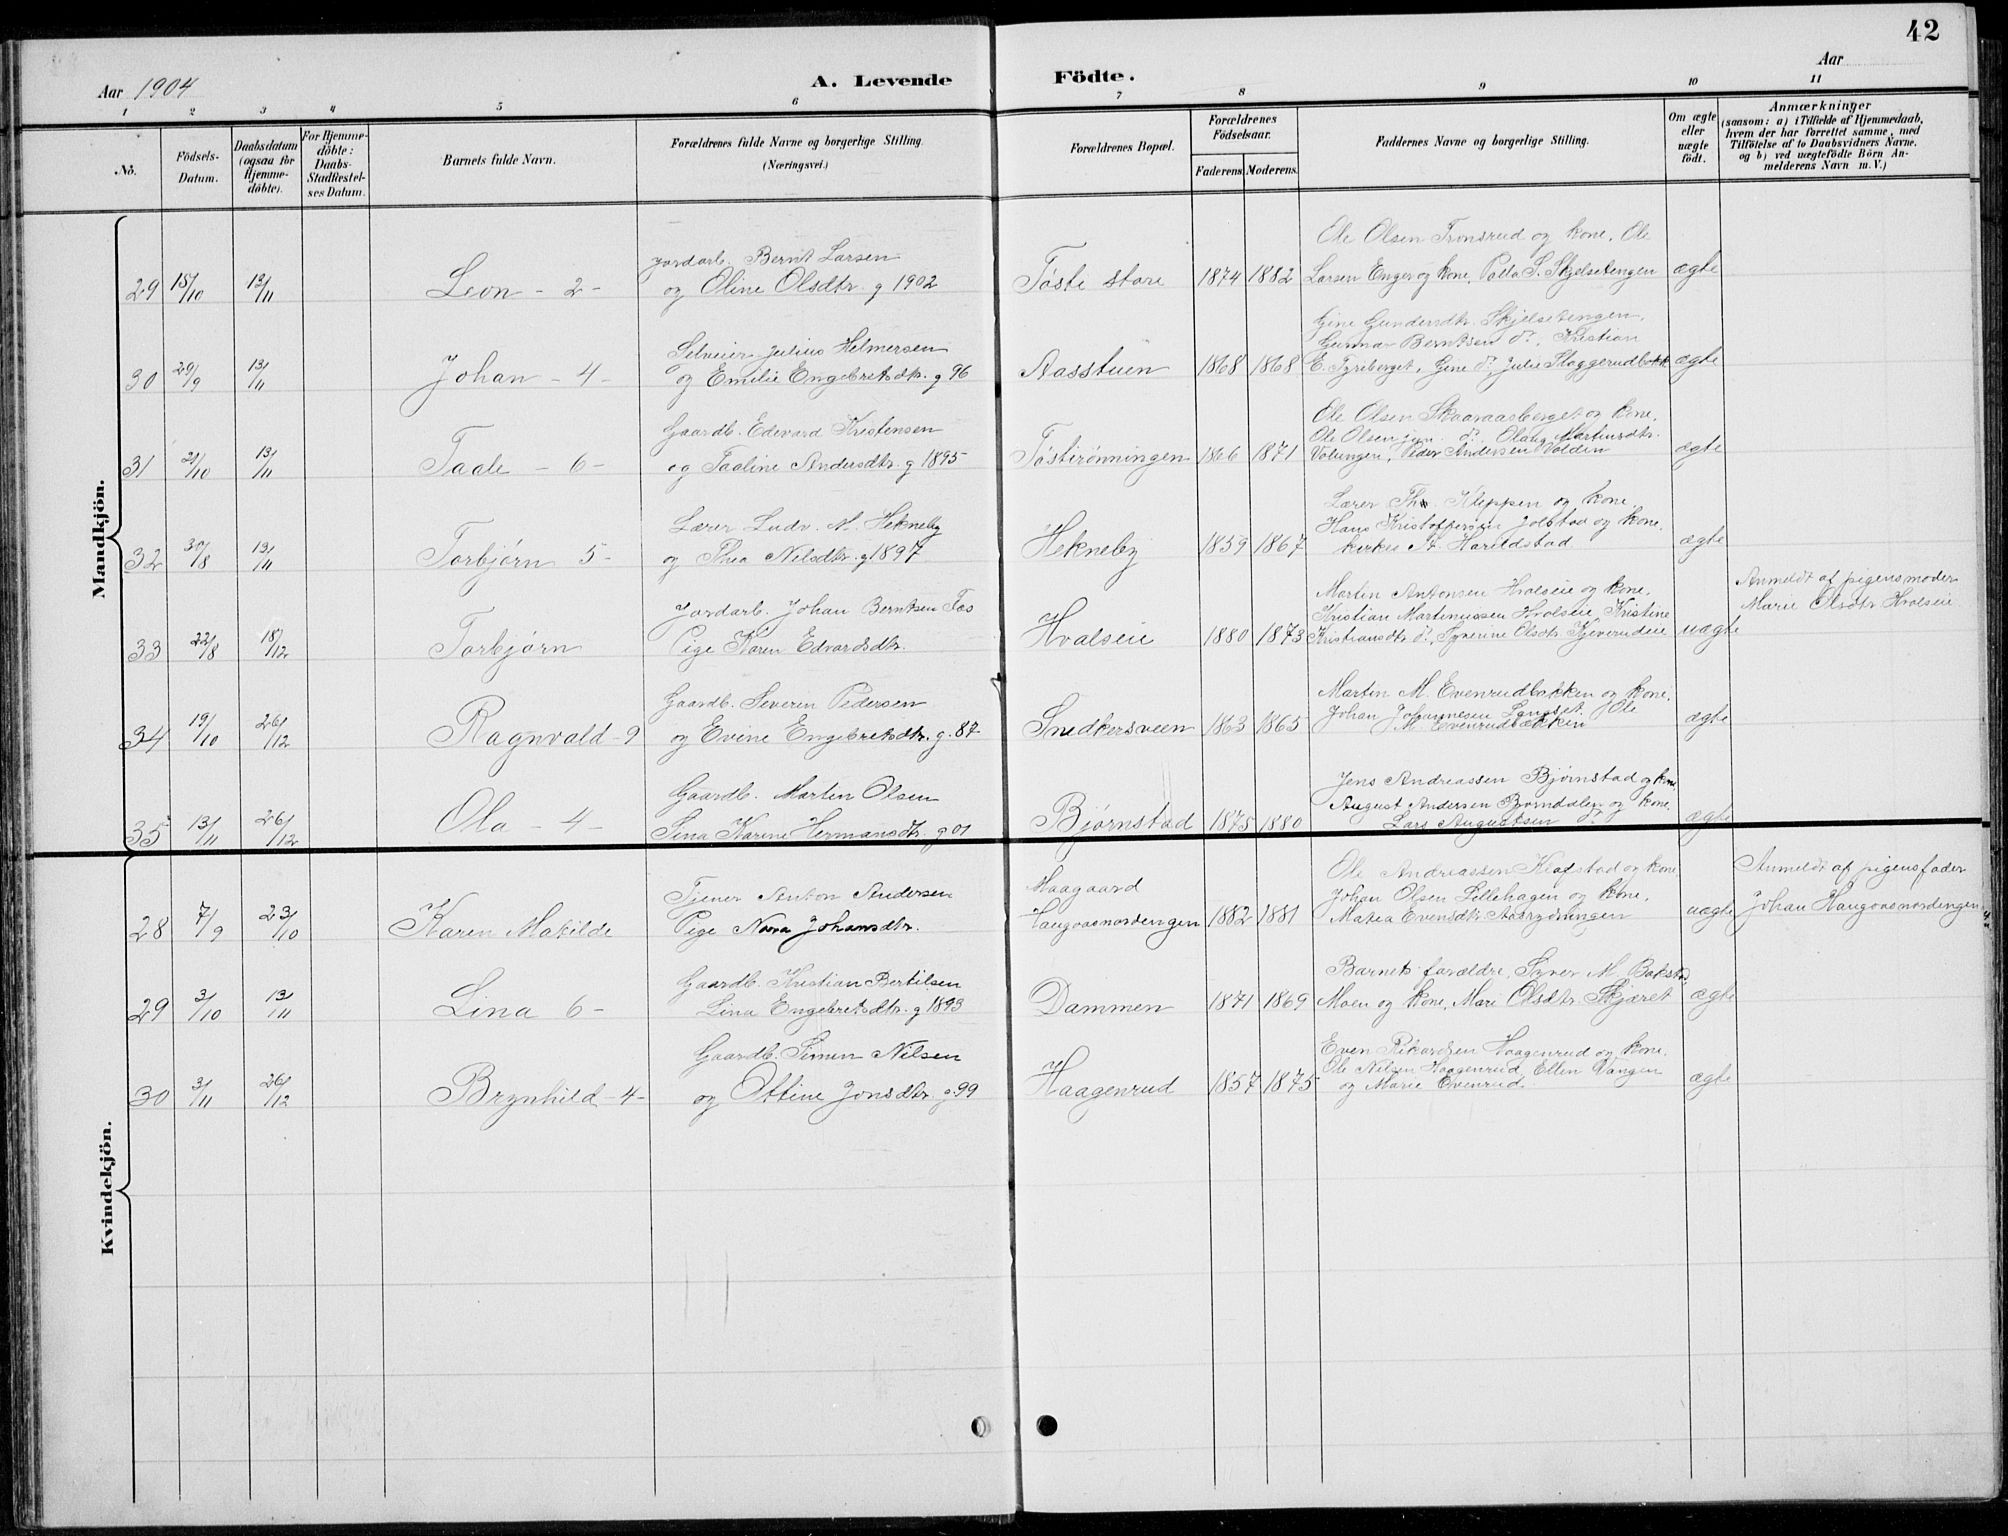 42
Aar 1904
A. Levende Födte.
Aar
1 2 3 4 5 6 7 8 9 10 11
No.
Födsels-Datum.
Daabsdatum (ogsaa for Hjemme-döbte).
For Hjemme-döbte: Daabs-Stadfestel-ses Datum.
Barnets fulde Navn.
Forældrenes fulde Navne og borgerlige Stilling.
(Næringsvei.)
Forældrenes Bopæl.
Forældrenes Födselsaar.
Faderens. Moderens.
Faddernes Navne og borgerlige Stilling.
Om ægte eller uægte födt.
Anmærkninger
(saasom: a) i Tilfælde af Hjemmedaab,
hvem der har forrettet samme, med
Tilföielse af to Daabsvidners Navne.
og b) ved uægtefödte Börn An-
melderens Navn m. V.)
Mandkjön.
29 15/10 13/11 Leon - 2 -
Jordarb. Bernt Larsen
og Oline Olsdtr. g 1902
Töste store 1874 1882
Ole Olsen Tronsrud og kone, Ole
Larsen Enger og kone, Palta S. Skjelsetengen
ægte
30 29/9 13/11 Johan - 4 -
Selveier Julius Helmersen
og Emilie Engebretsdtr. g 96
Aasstuen 1868 1868
Gine Gundersdtr. Skjelsetengen,
Gunnar Berntsen do, Kristian
E. Fyreberget, Gine do, Julie Slaggerudbakk
ægte
31 21/10 13/11 Taale - 6 -
Gaardb. Edevard Kristensen
og Taaline Andersdtr. g 1895
Töstirönningen 1866 1871
Ole Olsen Skaaraasberget og kone,
Ole Olsen jun. do, Olaug Martinsdtr.
Volungen, Peder Andersen Volden
ægte
32 30/8 13/11 Torbjörn 5 -
Lærer Ludv. M. Hekneby
og Thea Nilsdtr. g 1897
Hekneby 1859 1867
Lærer Th. Kleppen og kone,
Hans Kristoffersen Jolstad og kone,
kirkes. A. Haraldstad
ægte
33 22/8 18/12 Torbjörn
Jordarb. Johan Berntsen Fos
Pige Karen Edvardsdtr.
Hvalseie 1880 1873
Martin Antonsen Hvalseie og kone,
Kristian Martinussen Hvalseie, Kristine
Kristiansdtr do, Syverine Olsdtr. Kjeverudeie
uægte
Anmeldt af pigens moder
Marie Olsdtr. Hvalseie
34 19/10 26/12 Ragnvald - 9
Gaardb. Severin Pedersen
og Evine Engebretsdtr. g. 87
Snedkersveen 1863 1865
Martin M. Evenrudbakken og kone,
Johan Johannesen Langset, Ole
M. Evenrudbakken
ægte
35 13/11 26/12 Ola - 4 -
Gaardb. Martin Olsen
Sina Karine Hermansdtr. g 01
Björnstad 1875 1880
Jens Andreassen Björnstad og kone
August Andersen Björndalen og kone,
Lars Augustsen do
ægte
Kvindekjön.
28 7/9 23/10 Karen Matilde
Tjener Anton Andersen
Pige Nora Johansdtr.
Haagaard
Haugaasnordengen 1882 1881
Ole Andreassen Klafstad og kone
Johan Olsen Lillehagen og kone,
Matea Evensdtr.
uægte
Anmeldt af pigens fader
Johan Haugaasnordengen
29 3/10 13/11 Lina 6 -
Gaardb. Kristian Bertilsen
Lina Engebretsdtr. g 1893
Dammen 1871 1869
Barnets forældre, Syver M. Bakstad
Moen og kone, Mari Olsdtr. Skjæret
ægte
30 3/11 26/12 Brynhild - 4 -
Gaardb. Simen Nilsen
og Ottine Jonsdtr. g. 99
Haagenrud 1857 1875
Even Rikardsen Haagenrud og kone,
Ole Nilsen Haagenrud, Ellen Vangen
og Marie Evenrud.
ægte